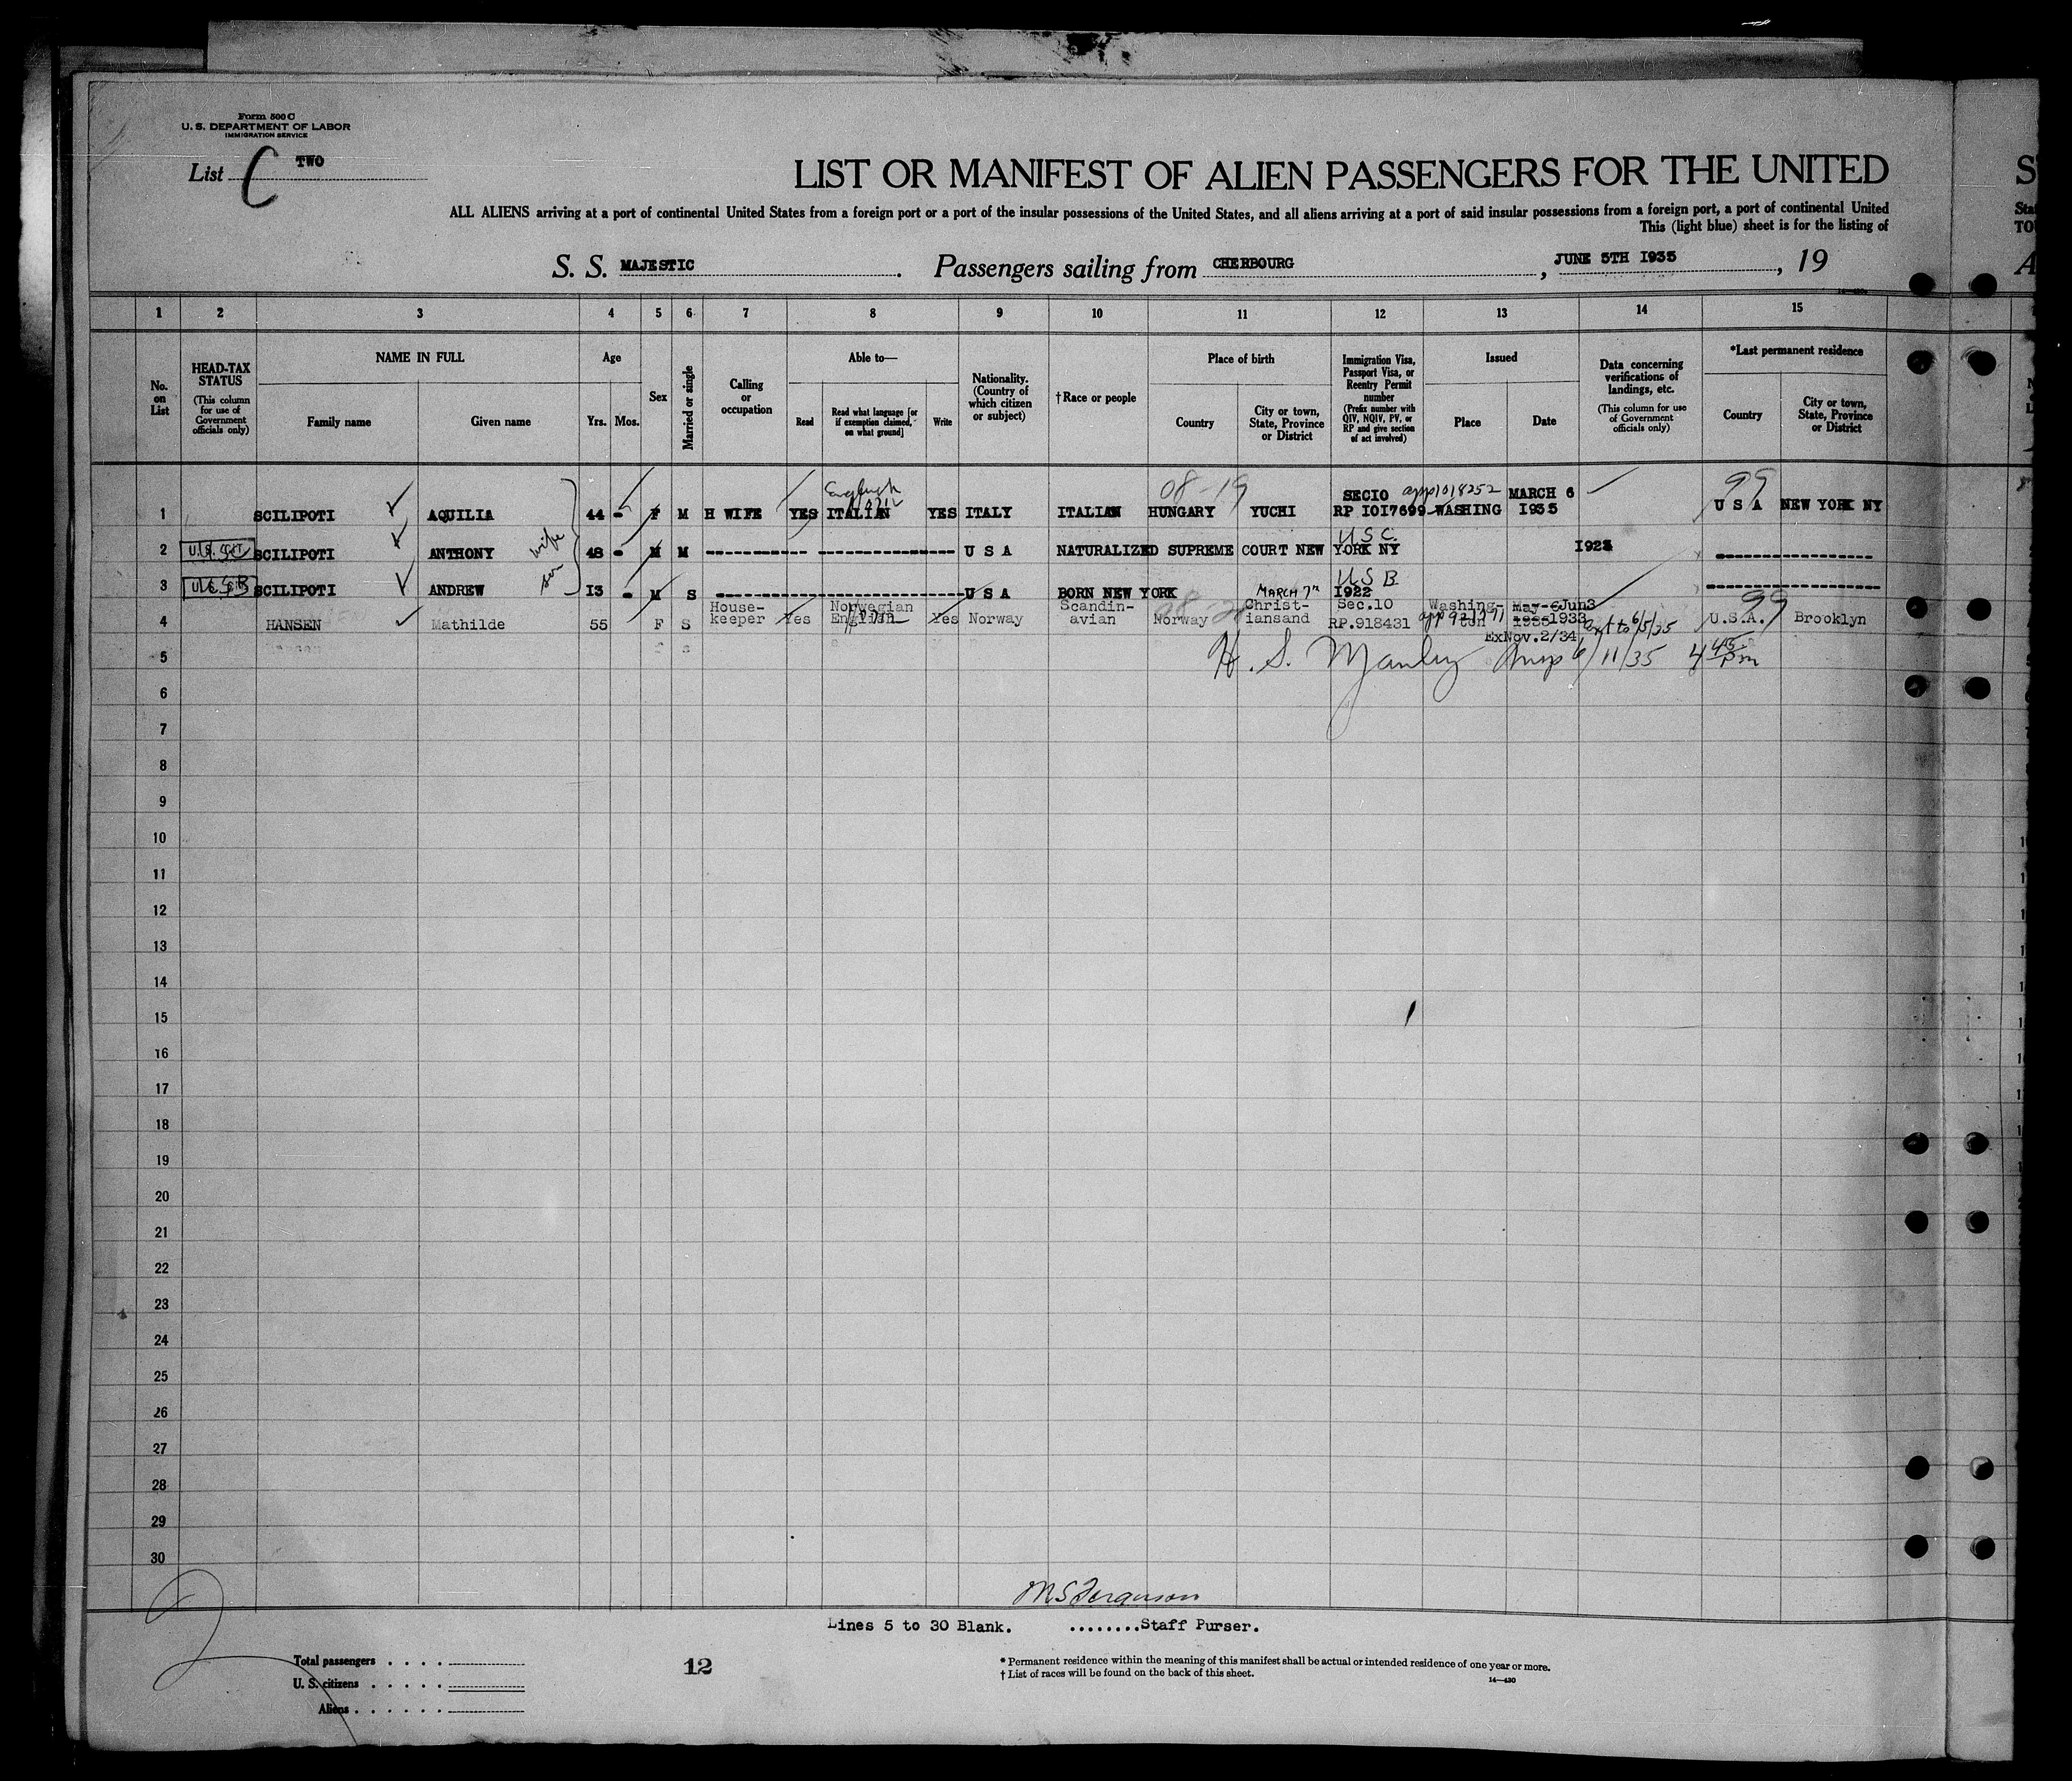 Form 500 C
U. S. DEPARTMENT OF LABOR
IMMIGRATION SERVICE
List C TWO
LIST OR MANIFEST OF ALIEN PASSENGERS FOR THE UNITED
ALL ALIENS arriving at a port of continental United States from a foreign port or a port of the insular possessions of the United States, and all aliens arriving at a port of said insular possessions from a foreign port, a port of continental United
This (light blue) sheet is for the listing of
S. S. MAJESTIC . Passengers sailing from CHERBOURG , JUNE 5TH 1935 , 19
1 2 3 4 5 6 7 8 9 10 11 12 13 14 15
No. on List
HEAD-TAX STATUS (This column for use of Government officials only)
NAME IN FULL
Family name Given name
Age
Yrs. Mos.
Sex
Married or single
Calling or occupation
Able to—
Read Read what language [or if exemption claimed, on what ground] Write
Nationality. (Country of which citizen or subject)
†Race or people
Place of birth
Country City or town, State, Province or District
Immigration Visa, Passport Visa, or Reentry Permit number (Prefix number with QIV, NQIV, PV, or RP and give section of act involved)
Issued
Place Date
Data concerning verifications of landings, etc. (This column for use of Government officials only)
*Last permanent residence
Country City or town, State, Province or District
English 08-19 SECIO app 1018252 MARCH 6 99
1 SCILIPOTI AQUILIA 44 - F M H WIFE YES ITALIAN YES ITALY ITALIAN HUNGARY YUCHI RP IOI7699 WASHING 1935 U S A NEW YORK NY
wife
U.S.C.
2 U.S. CIT SCILIPOTI ANTHONY 48 - M M U S A NATURALIZED SUPREME COURT NEW YORK NY I923
son
U S B
3 SCILIPOTI ANDREW I3 - M S U S A BORN NEW YORK MARCH 7TH I922
House- Norwegian Scandin- Christ- Sec.10 Washing- May 6 Jun3 99
4 HANSEN Mathilde 55 F S keeper Yes English Yes Norway avian Norway iansand RP.918431 ton 1933 ext to 6/5/35 U.S.A. Brooklyn
ExNov.2/34,
5 H. S. Manley Insp 6/11/35 4 45 pm
6
7
8
9
10
11
12
13
14
15
16
17
18
19
20
21
22
23
24
25
26
27
28
29
30
M S Ferguson
Lines 5 to 30 Blank. ........Staff Purser.
Total passengers . . . .
U. S. citizens . . . . .
Aliens . . . . . .
12
* Permanent residence within the meaning of this manifest shall be actual or intended residence of one year or more.
† List of races will be found on the back of this sheet.
14—430